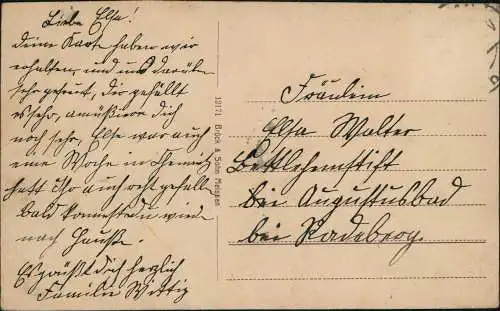 Liebe Elsa!
deine Karte haben wir
erhalten, und uns darüber
sehr gefreut, dir gefällt
es sehr, amüsiere dich
noch sehr, Else war auch
eine Woche in Chemnitz
hatt ihr auch echt gefallen
bald kommst du wieder
nach Hauße.
Es grüßt dich herzlich
Familie Wittig
12171 Brück & Sohn Meissen
Fräulein
Elsa Walter
Bethlehemstift
bei Augustusbad
bei Radeberg.